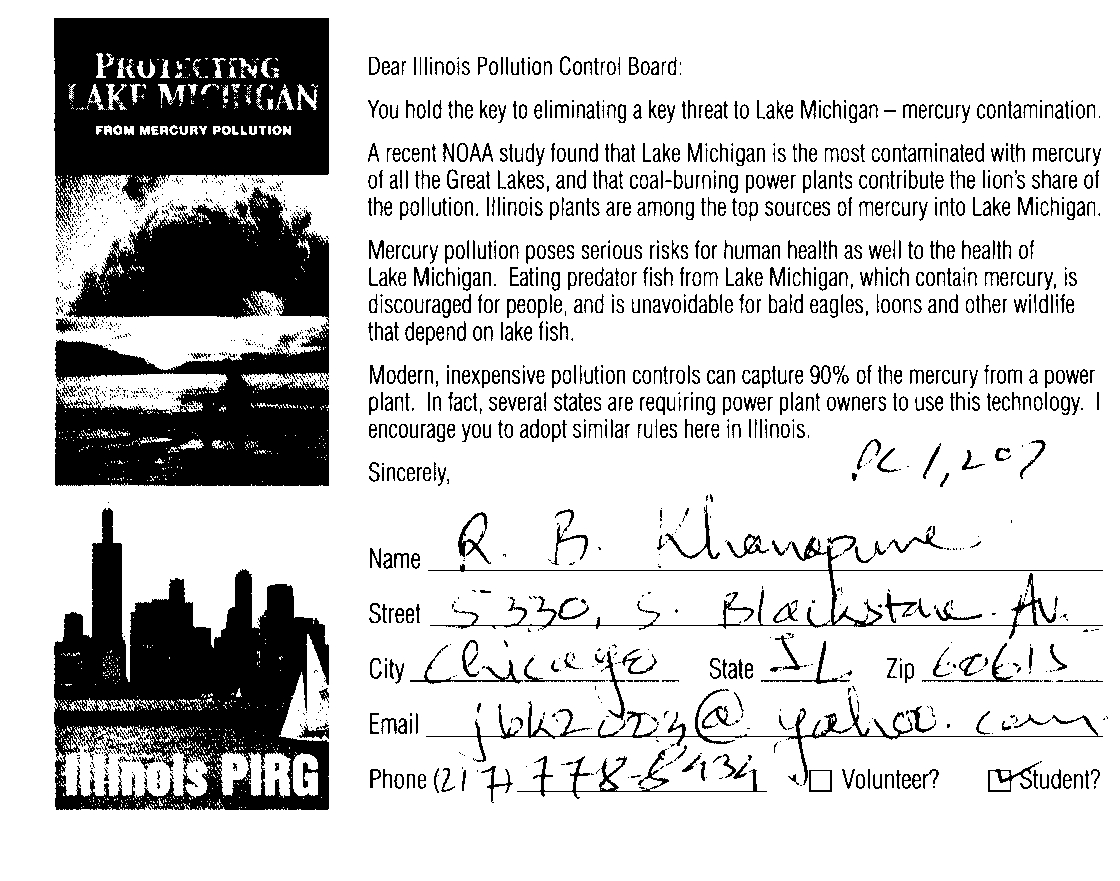 PROTECTING
LAKE MICHIGAN
FROM MERCURY POLLUTION
Illinois PIRG
Dear Illinois Pollution Control Board:
You hold the key to eliminating a key threat to Lake Michigan – mercury contamination.
A recent NOAA study found that Lake Michigan is the most contaminated with mercury
of all the Great Lakes, and that coal-burning power plants contribute the lion's share of
the pollution. Illinois plants are among the top sources of mercury into Lake Michigan.
Mercury pollution poses serious risks for human health as well to the health of
Lake Michigan. Eating predator fish from Lake Michigan, which contain mercury, is
discouraged for people, and is unavoidable for bald eagles, loons and other wildlife
that depend on lake fish.
Modern, inexpensive pollution controls can capture 90% of the mercury from a power
plant. In fact, several states are requiring power plant owners to use this technology. I
encourage you to adopt similar rules here in Illinois.
Sincerely,
PC 1,207
Name R. B. Khanapure
Street 5330, S. Blackstone Av.
City Chicago State IL Zip 60615
Email jbk2003@yahoo.com
Phone (217) 778-8434 Volunteer? Student?